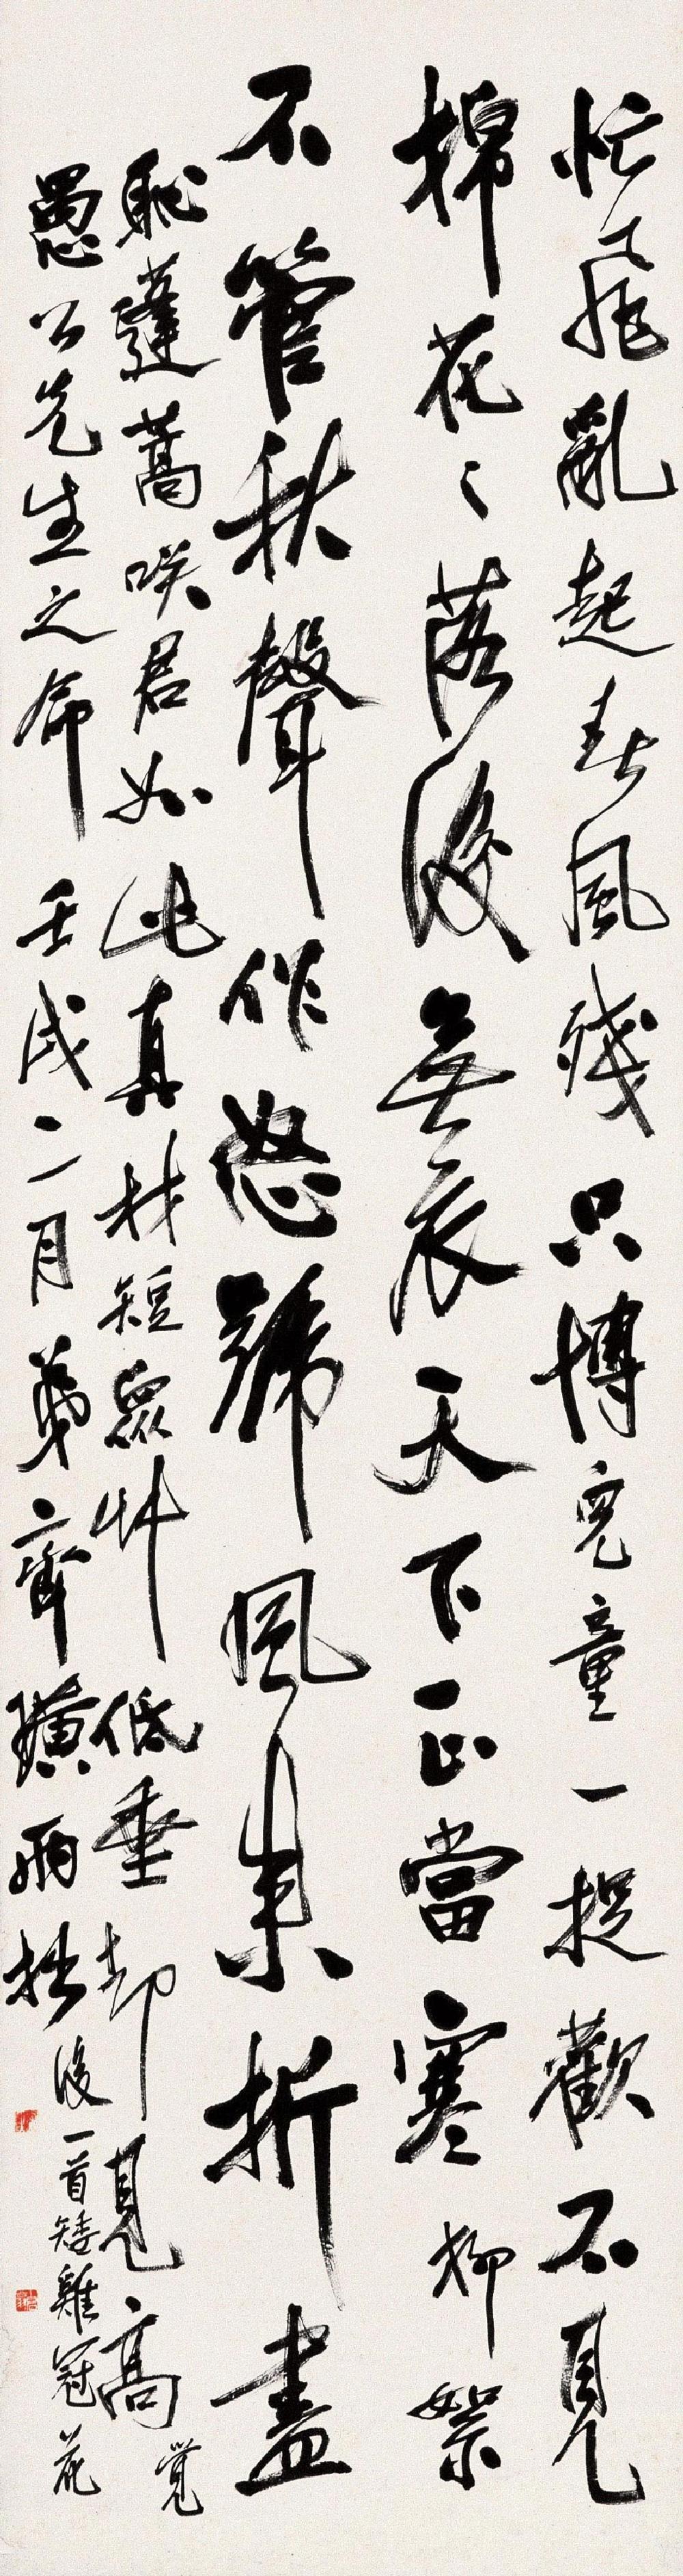 忙飛亂起春風殘只博兒童一捉歡不見
棉花〻落後無衣天下正當寒柳絮
不管秋聲作怒號風來折盡
恥蓬蒿咲君如此真材短眾草低垂却見高
覺
愚公先生之命 壬戌二月弟齊璜兩拙
後一首矮雞冠花